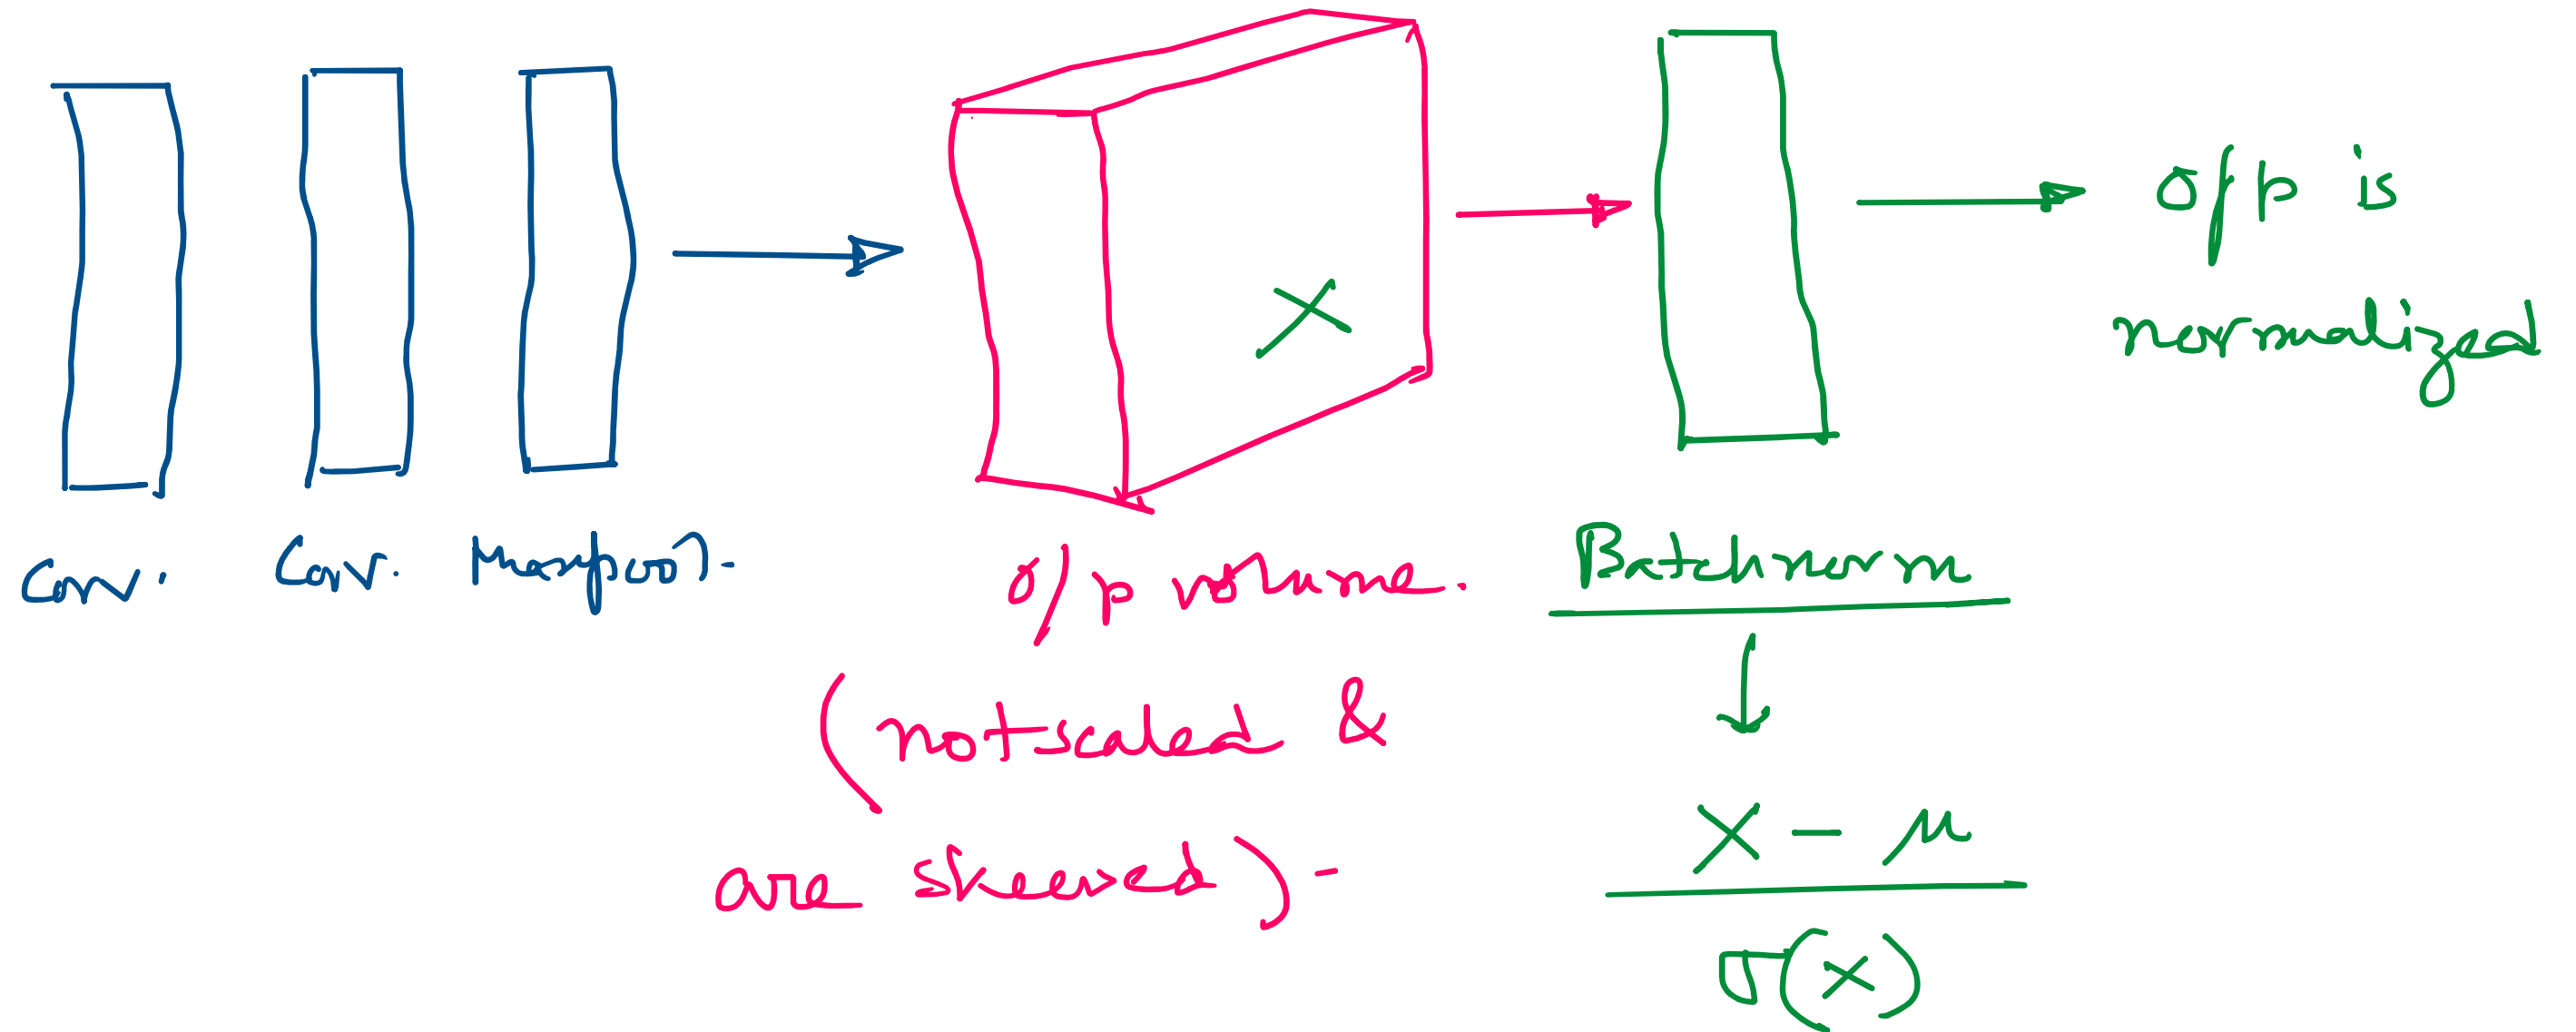 Conv.
Conv.
Maxpool.
X
o/p volume.
(not scaled &
are skewed).
Batchnorm
X - μ
σ(x)
o/p is
normalized